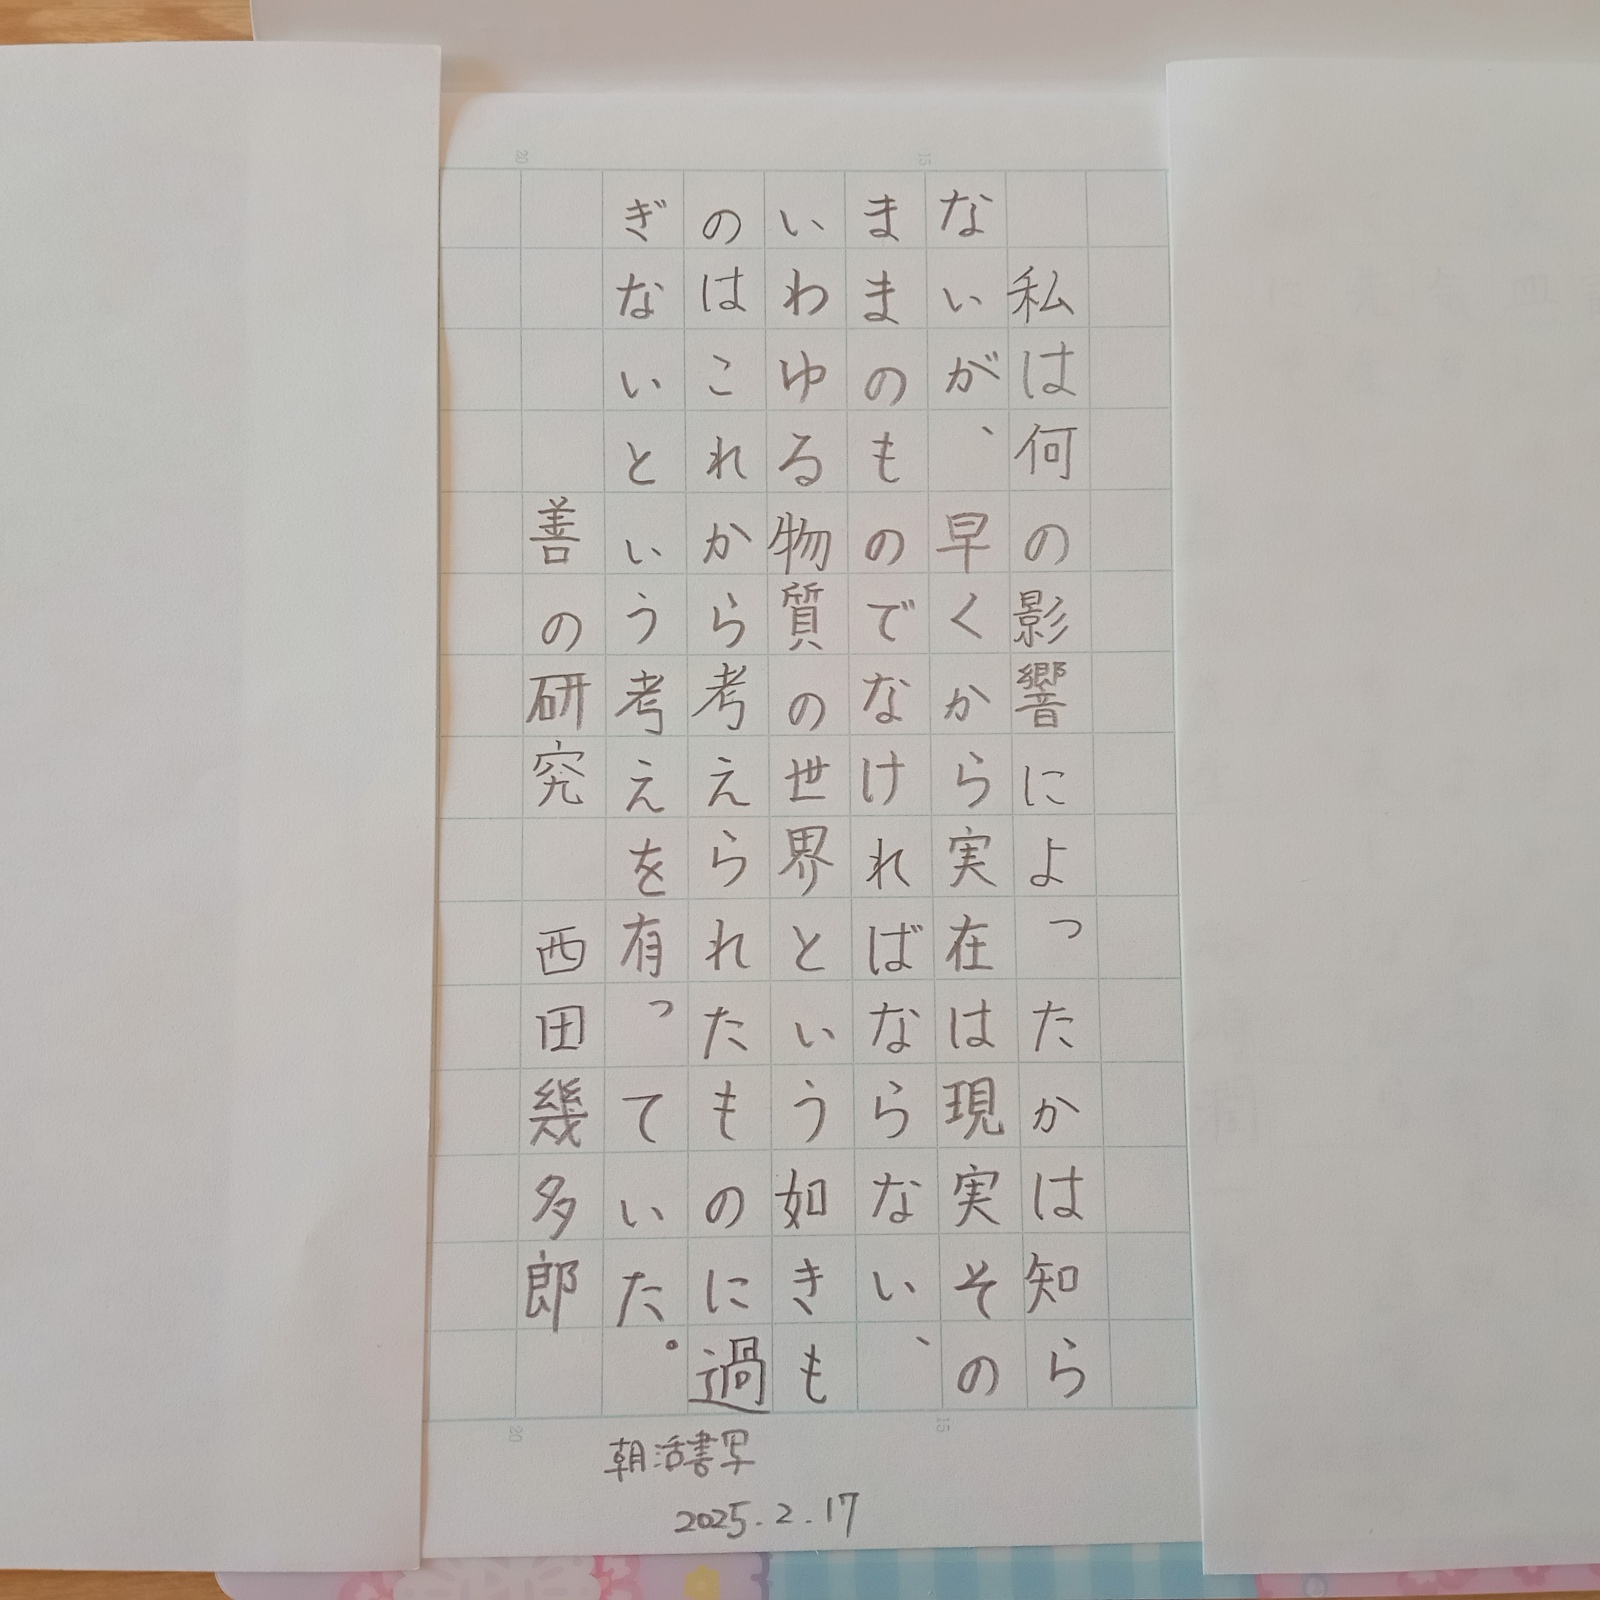 私は何の影響によったかは知ら
ないが、早くから実在は現実その
まままのものでなければならない、
いわゆる物質の世界という如きも
のはこれから考えられたものに過
ぎないという考えを有っていた。
善の研究 西田幾多郎
朝活書写
2025.2.17
20
15
20
15